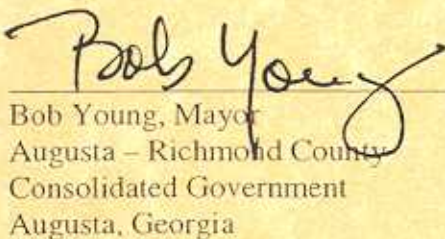 Bob Young
Bob Young, Mayor
Augusta – Richmond County
Consolidated Government
Augusta, Georgia